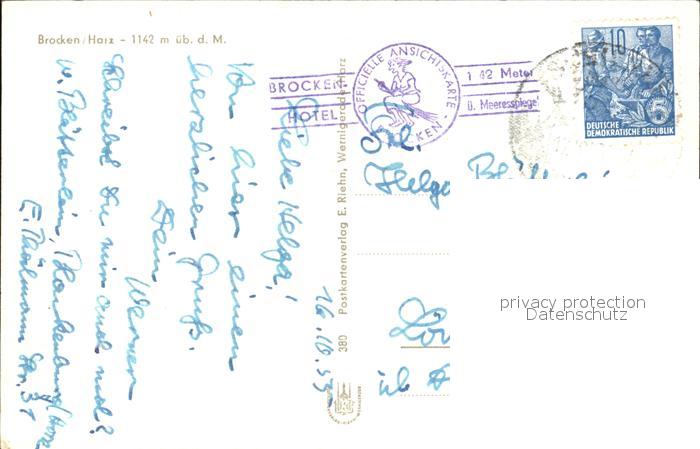 Brocken/Harz - 1142 m üb. d. M.
BROCKEN-
HOTEL
OFFICIELLE ANSICHTSKARTE
BROCKEN
1142 Meter
ü. Meeresspiegel
10
5
DEUTSCHE
DEMOKRATISCHE REPUBLIK
16.10.55
Liebe Helga!
Von hier einen
herzlichen Gruß.
Dein
Werner
Schreibst Du mir auch mal?
W. Blankenburg/Harz
E. Thälmann Str. 31
380 Postkartenverlag E. Riehn, Wernigerode-Harz
Frl.
Helga
privacy protection
Datenschutz